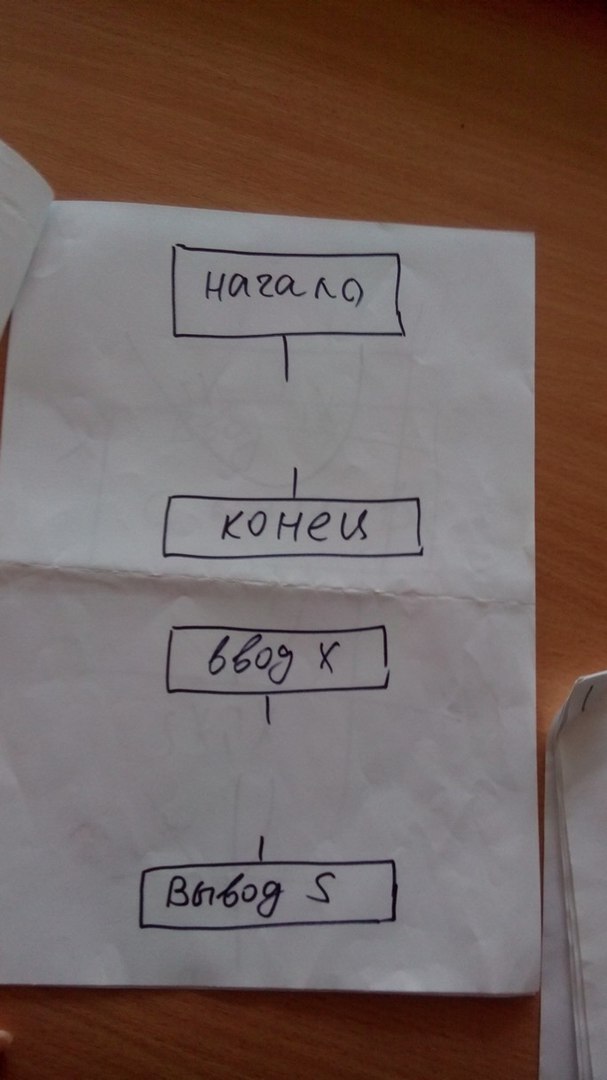 начало
конец
ввод x
Вывод S